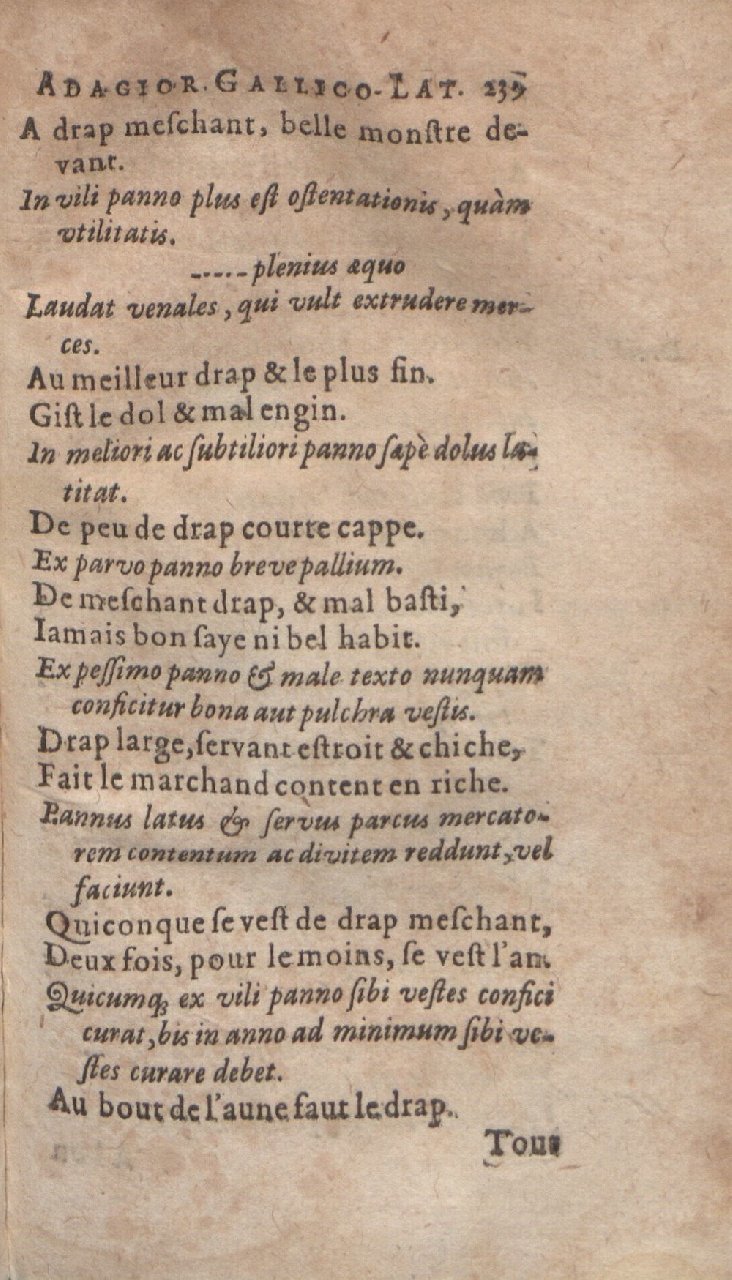 ADAGIOR. GALLICO-LAT. 239
A drap meſchant, belle monſtre de-
vant.
In vili panno plus eſt oſtentationis, quàm
vtilitatis.
-----plenius æquo
Laudat venales, qui vult extrudere mer-
ces.
Au meilleur drap & le plus fin.
Giſt le dol & mal engin.
In meliori ac ſubtiliori panno ſæpè dolus la-
titat.
De peu de drap courte cappe.
Ex parvo panno breve pallium.
De meſchant drap, & mal baſti,
Iamais bon ſaye ni bel habit.
Ex peſſimo panno & male texto nunquam
conficitur bona aut pulchra veſtis.
Drap large, ſervant eſtroit & chiche,
Fait le marchand content en riche.
Pannus latus & ſervus parcus mercato-
rem contentum ac divitem reddunt, vel
faciunt.
Quiconque ſe veſt de drap meſchant,
Deux fois, pour le moins, ſe veſt l'an.
Quicumq; ex vili panno ſibi veſtes confici
curat, bis in anno ad minimum ſibi ve-
ſtes curare debet.
Au bout de l'aune faut le drap.
Tous